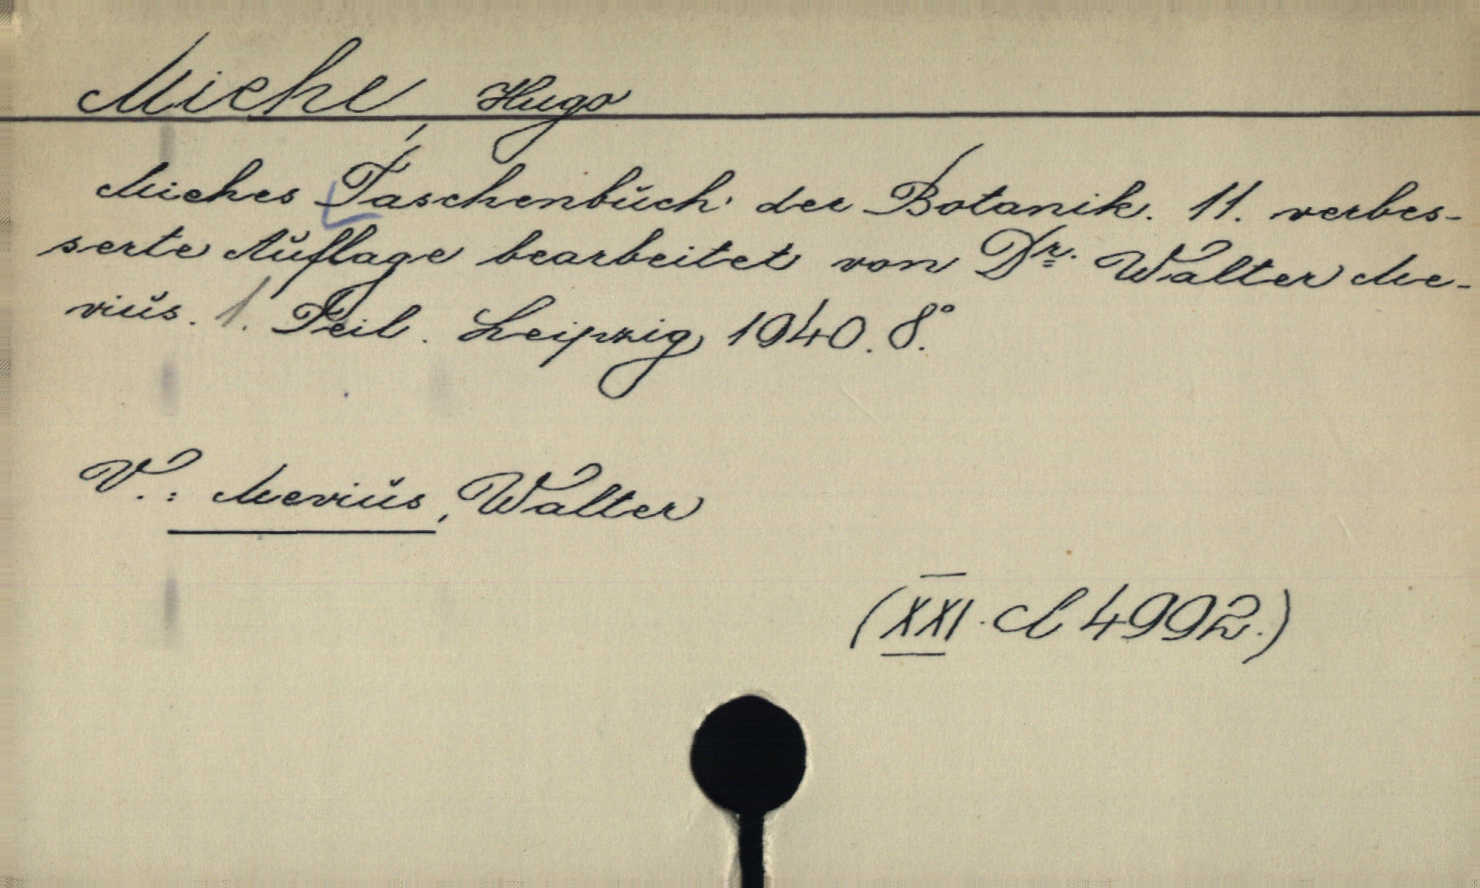 Miehe, Hugo
Miehes Taschenbuch der Botanik. 11. verbes-
serte Auflage bearbeitet von Dr. Walter Me-
vius. 1. Teil. Leipzig, 1940. 8°.
V.: Mevius, Walter
(XXI. A 4992.)